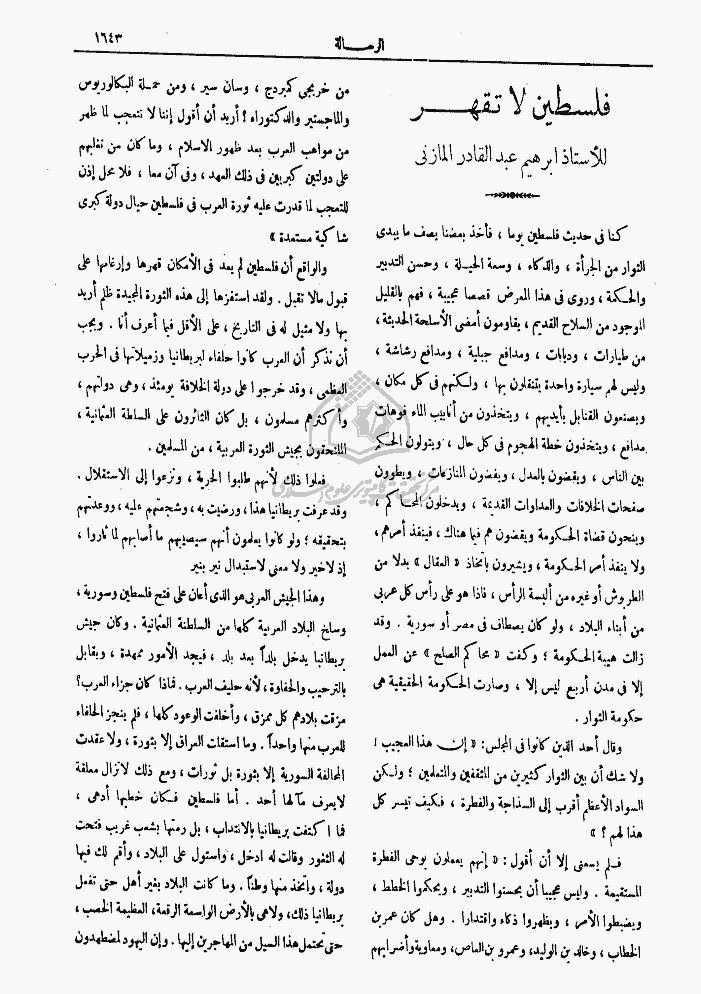 الرسالة
١٦٤٣
فلسطين لا تقهر
للأستاذ ابرهيم عبد القادر المازني
كنا في حديث فلسطين يوما ، فأخذ بعضنا يصف ما يبدى
الثوار من الجرأة ، والذكاء ، وسعة الحيلة ، وحسن التدبير
والحكمة ، وروى في هذا المعرض قصصا عجيبة ، فهم بالقليل
الموجود من السلاح القديم ، يقاومون أمضى الأسلحة الحديثة ،
من طيارات ، ودبابات ، ومدافع جبلية ، ومدافع رشاشة ،
وليس لهم سيارة واحدة يتنقلون بها ، ولكنهم في كل مكان ،
ويصنعون القنابل بأيديهم ، ويتخذون من أنابيب الماء فوهات
مدافع ، ويتخذون خطة الهجوم في كل حال ، ويتولون الحكم
بين الناس ، ويقضون بالعدل ، ويفضون المنازعات ، ويطوون
صفحات الخلافات والعداوات القديمة ، ويدخلون المحاكم ،
وينحون قضاة الحكومة ويقضون هم فيما هناك ، فينفذ أمرهم ،
ولا ينفذ أمر الحكومة ، ويشيرون باتخاذ « العقال » بدلا من
الطربوش أو غيره من ألبسة الرأس ، فاذا هو على رأس كل عربى
من أبناء البلاد ، ولو كان يصطاف في مصر أو سورية . وقد
زالت هيبة الحكومة ؛ وكفت « محاكم الصلح » عن العمل
إلا في مدن أربع ليس إلا ، وصارت الحكومة الحقيقية هى
حكومة الثوار .
وقال أحد الذين كانوا في المجلس : « إن هذا لعجيب !
ولا شك أن بين الثوار كثيرين من المثقفين والمتعلمين ؛ ولكن
السواد الأعظم أقرب إلى السذاجة والفطرة ، فكيف تيسر كل
هذا لهم ؟ »
فلم يسعنى إلا أن أقول : « إنهم يعملون بوحى الفطرة
المستقيمة . وليس عجيبا أن يحسنوا التدبير ، ويحكموا الخطط ،
ويضبطوا الأمر ، ويظهروا ذكاء واقتدارا . وهل كان عمر بن
الخطاب ، وخالد بن الوليد، وعمرو بن العاص، ومعاوية وأضرابهم
من خريجى كمبردج ، وسان سير ، ومن حملة البكالوريوس
والماجستير والدكتوراه ؟ أريد أن أقول إننا لا نتعجب لما ظهر
من مواهب العرب بعد ظهور الاسلام ، وما كان من تغلبهم
على دولتين كبريين في ذلك العهد ، وفى آن معا ، فلا محل إذن
للتعجب لما قدرت عليه ثورة العرب في فلسطين حيال دولة كبرى
شاكية مستعدة »
والواقع أن فلسطين لم يعد في الأمكان قهرها وإرغامها على
قبول مالا تقبل . ولقد استفزها إلى هذه الثورة المجيدة ظلم أريد
بها ولا مثيل له في التاريخ ، على الأقل فيما أعرف أنا . ويجب
أن نذكر أن العرب كانوا حلفاء لبريطانيا وزميلاتها في الحرب
العظمى ، وقد خرجوا على دولة الخلافة يومئذ ، وهى دولتهم ،
وأكثرهم مسلمون ، بل كان الثائرون على السلطة العثمانية ،
الملتحقون بجيش الثورة العربية ، من المسلمين .
فعلوا ذلك لأنهم طلبوا الحرية ، ونزعوا إلى الاستقلال .
وقد عرفت بريطانيا هذا ، ورضيت به ، وشجعتهم عليه ، ووعدتهم
بتحقيقه ؛ ولو كانوا يعلمون أنهم سيصيبهم ما أصابهم لما ثاروا ،
إذ لاخير ولا معنى لاستبدال نير بنير
وهذا الجيش العربى هو الذى أعان على فتح فلسطين وسورية ،
وسلخ البلاد العربية كلها من السلطنة العثمانية . وكان جيش
بريطانيا يدخل بلداً بعد بلد ، فيجد الأمور ممهدة ، ويقابل
بالترحيب والحفاوة ، لأنه حليف العرب . فماذا كان جزاء العرب؟
مزقت بلادهم كل ممزق ، وأخلفت الوعود كلها ، فلم ينجز الحلفاء
للعرب منها واحداً . وما استقلت العراق إلا بثورة ، ولا عقدت
المحالفة السورية إلا بثورة بل ثورات ، ومع ذلك لا تزال معلقة
لايعرف مآلها أحد . أما فلسطين فكان خطبها أدهى ،
فما اكتفت بريطانيا بالانتداب ، بل رمتها بشعب غريب فتحت
له الثغور وقالت له ادخل ، واستول على البلاد ، وأقم لك فيها
دولة ، واتخذ منها وطناً . وما كانت البلاد بغير أهل حتى تفعل
بريطانيا ذلك، ولاهى بالأرض الواسعة الرقعة، العظيمة الخصب ،
حتى تحتمل هذا السيل من المهاجرين إليها . وإن اليهود لمضطهدون